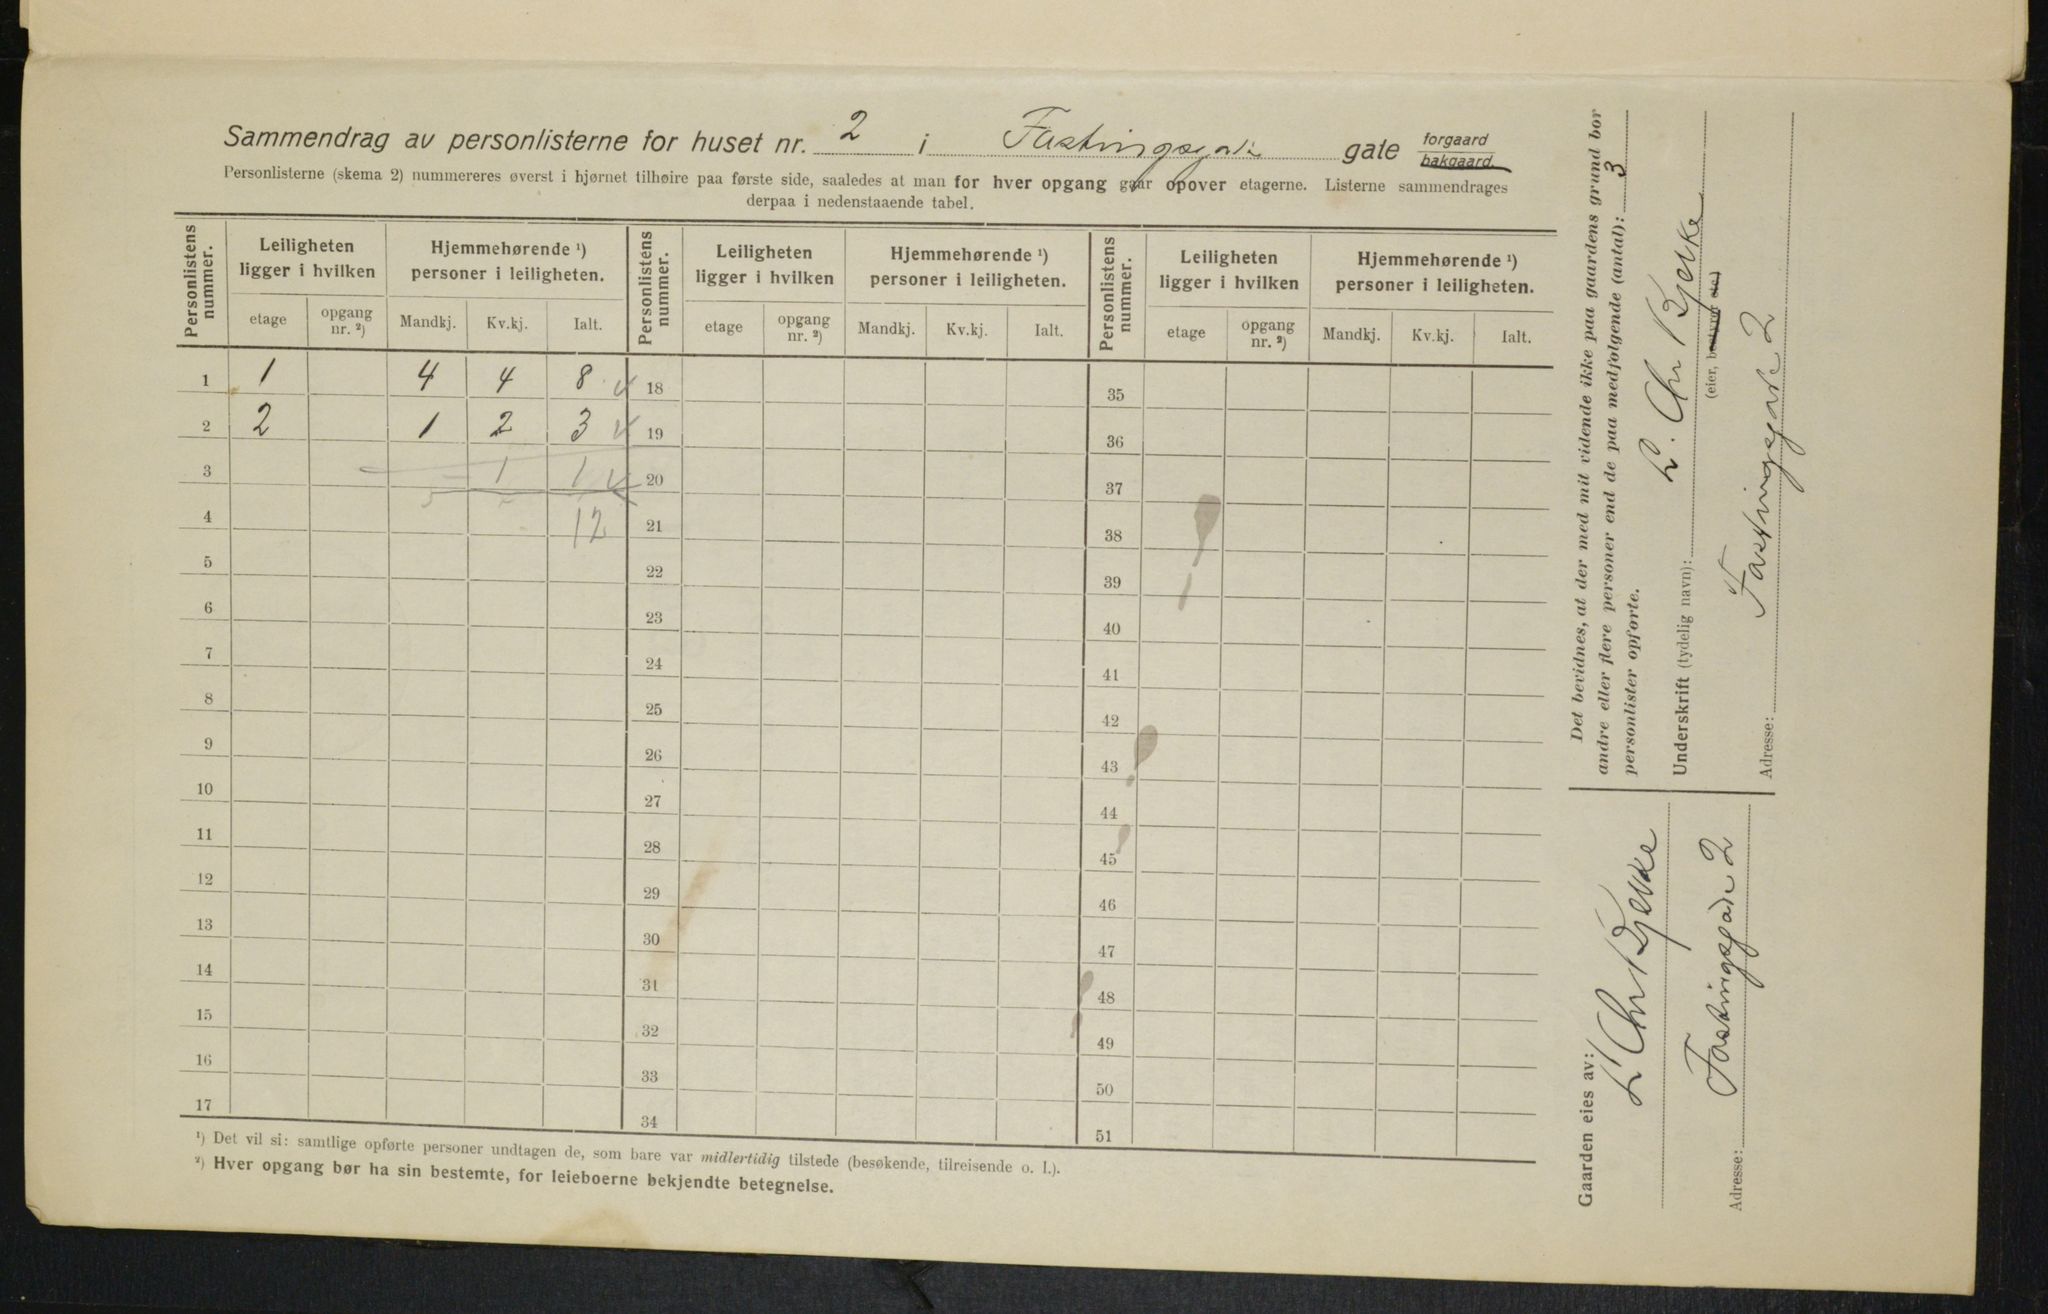 Sammendrag av personlisterne for huset nr. 2 i Fastingsgade gate forgaard bakgaard.
Personlisterne (skema 2) nummereres øverst i hjørnet tilhøire paa første side, saaledes at man for hver opgang gaar opover etagerne. Listerne sammendrages
derpaa i nedenstaaende tabel.
Personlistens nummer. Leiligheten ligger i hvilken Hjemmehørende ¹) personer i leiligheten. Personlistens nummer. Leiligheten ligger i hvilken Hjemmehørende ¹) personer i leiligheten. Personlistens nummer. Leiligheten ligger i hvilken Hjemmehørende ¹) personer i leiligheten.
etage opgang nr. ²) Mandkj. Kv.kj. Ialt. etage opgang nr. ²) Mandkj. Kv.kj. Ialt. etage opgang nr. ²) Mandkj. Kv.kj. Ialt.
1 1 4 4 8 18 35
2 2 1 2 3 19 36
3 1 1 20 37
4 12 21 38
5 22 39
6 23 40
7 24 41
8 25 42
9 26 43
10 27 44
11 28 45
12 29 46
13 30 47
14 31 48
15 32 49
16 33 50
17 34 51
¹) Det vil si: samtlige opførte personer undtagen de, som bare var midlertidig tilstede (besøkende, tilreisende o. l.).
²) Hver opgang bør ha sin bestemte, for leieboerne bekjendte betegnelse.
Det bevidnes, at der med mit vidende ikke paa gaardens grund bor
andre eller flere personer end de paa medfølgende (antal): 3
personlister opførte.
Underskrift (tydelig navn): L. Chr Kjekke
(eier, bestyrer etc.)
Adresse: Fastingsgade 2
Gaarden eies av: L Chr Kjekke
Adresse: Fastingsgade 2